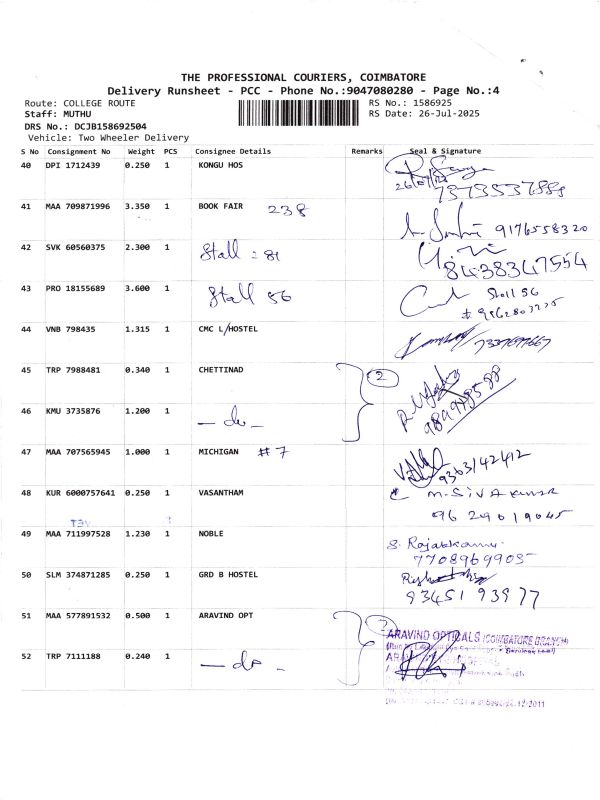 THE PROFESSIONAL COURIERS, COIMBATORE
Delivery Runsheet - PCC - Phone No.:9047080280 - Page No.:4
Route: COLLEGE ROUTE RS No.: 1586925
Staff: MUTHU RS Date: 26-Jul-2025
DRS No.: DCJB158692504
Vehicle: Two Wheeler Delivery
S No Consignment No Weight PCS Consignee Details Remarks Seal & Signature
40 DPI 1712439 0.250 1 KONGU HOS
41 MAA 709871996 3.350 1 BOOK FAIR 238 9176558320
42 SVK 60560375 2.300 1 Stall = 81 8438347554
43 PRO 18155689 3.600 1 Stall 56 Stall 56
44 VNB 798435 1.315 1 CMC L/HOSTEL
45 TRP 7988481 0.340 1 CHETTINAD 2
46 KMU 3735876 1.200 1 — do —
47 MAA 707565945 1.000 1 MICHIGAN #7 9363142412
48 KUR 6000757641 0.250 1 VASANTHAM M. SIVAKUMAR
9629019045
49 MAA 711997528 1.230 1 NOBLE
7708969905
50 SLM 374871285 0.250 1 GRD B HOSTEL
9345193977
51 MAA 577891532 0.500 1 ARAVIND OPT
ARAVIND OPTICALS (COIMBATORE BRANCH)
52 TRP 7111188 0.240 1 — do —